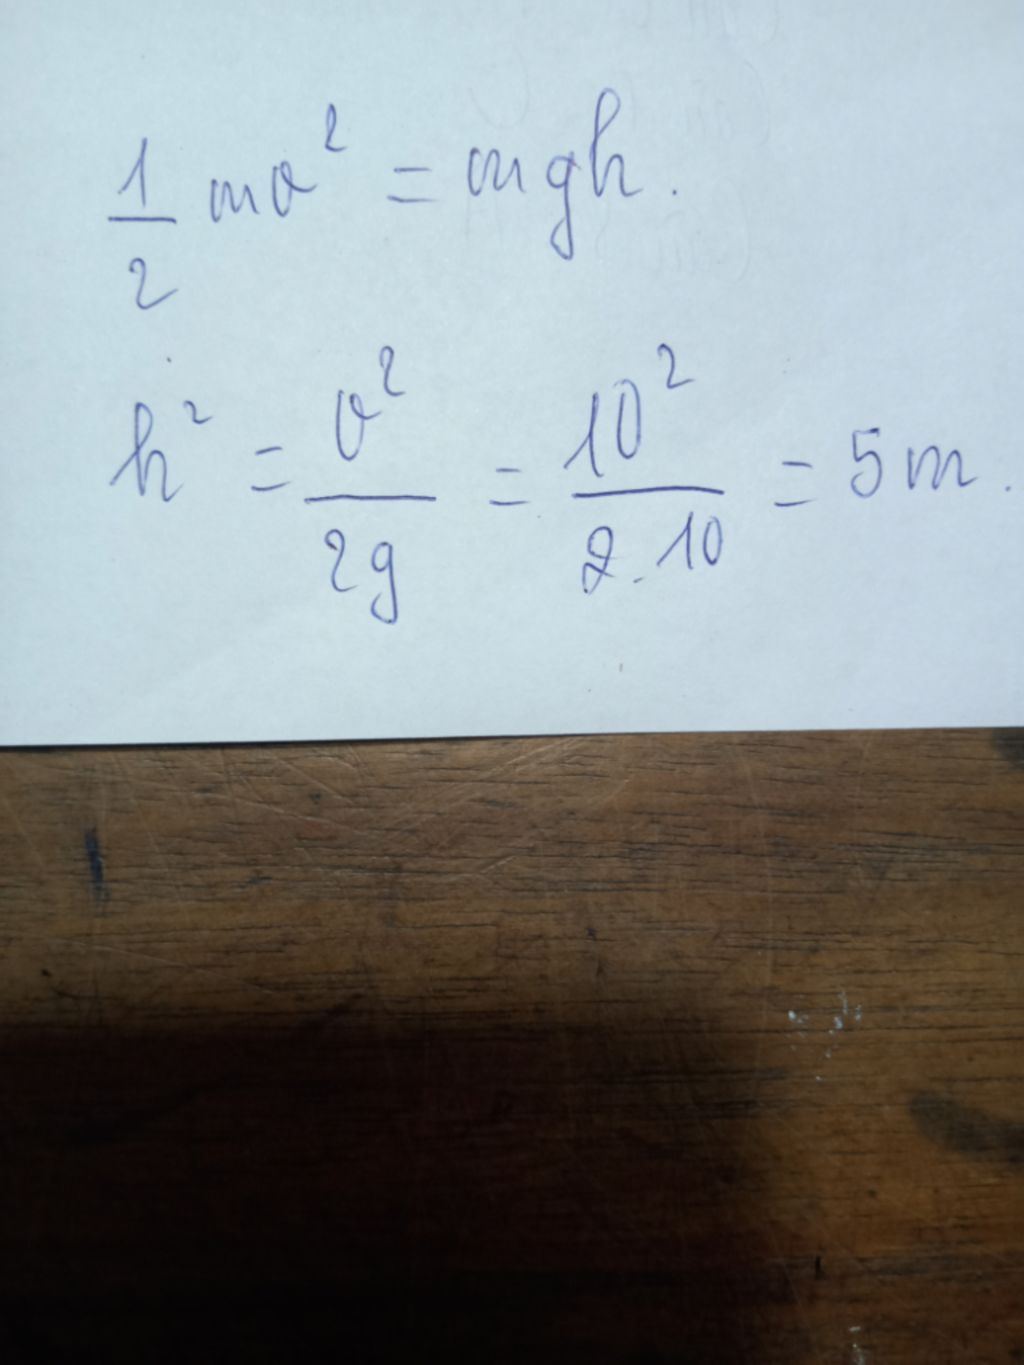 1/2 mv² = mgh.
h² = v²/2g = 10²/2.10 = 5m.